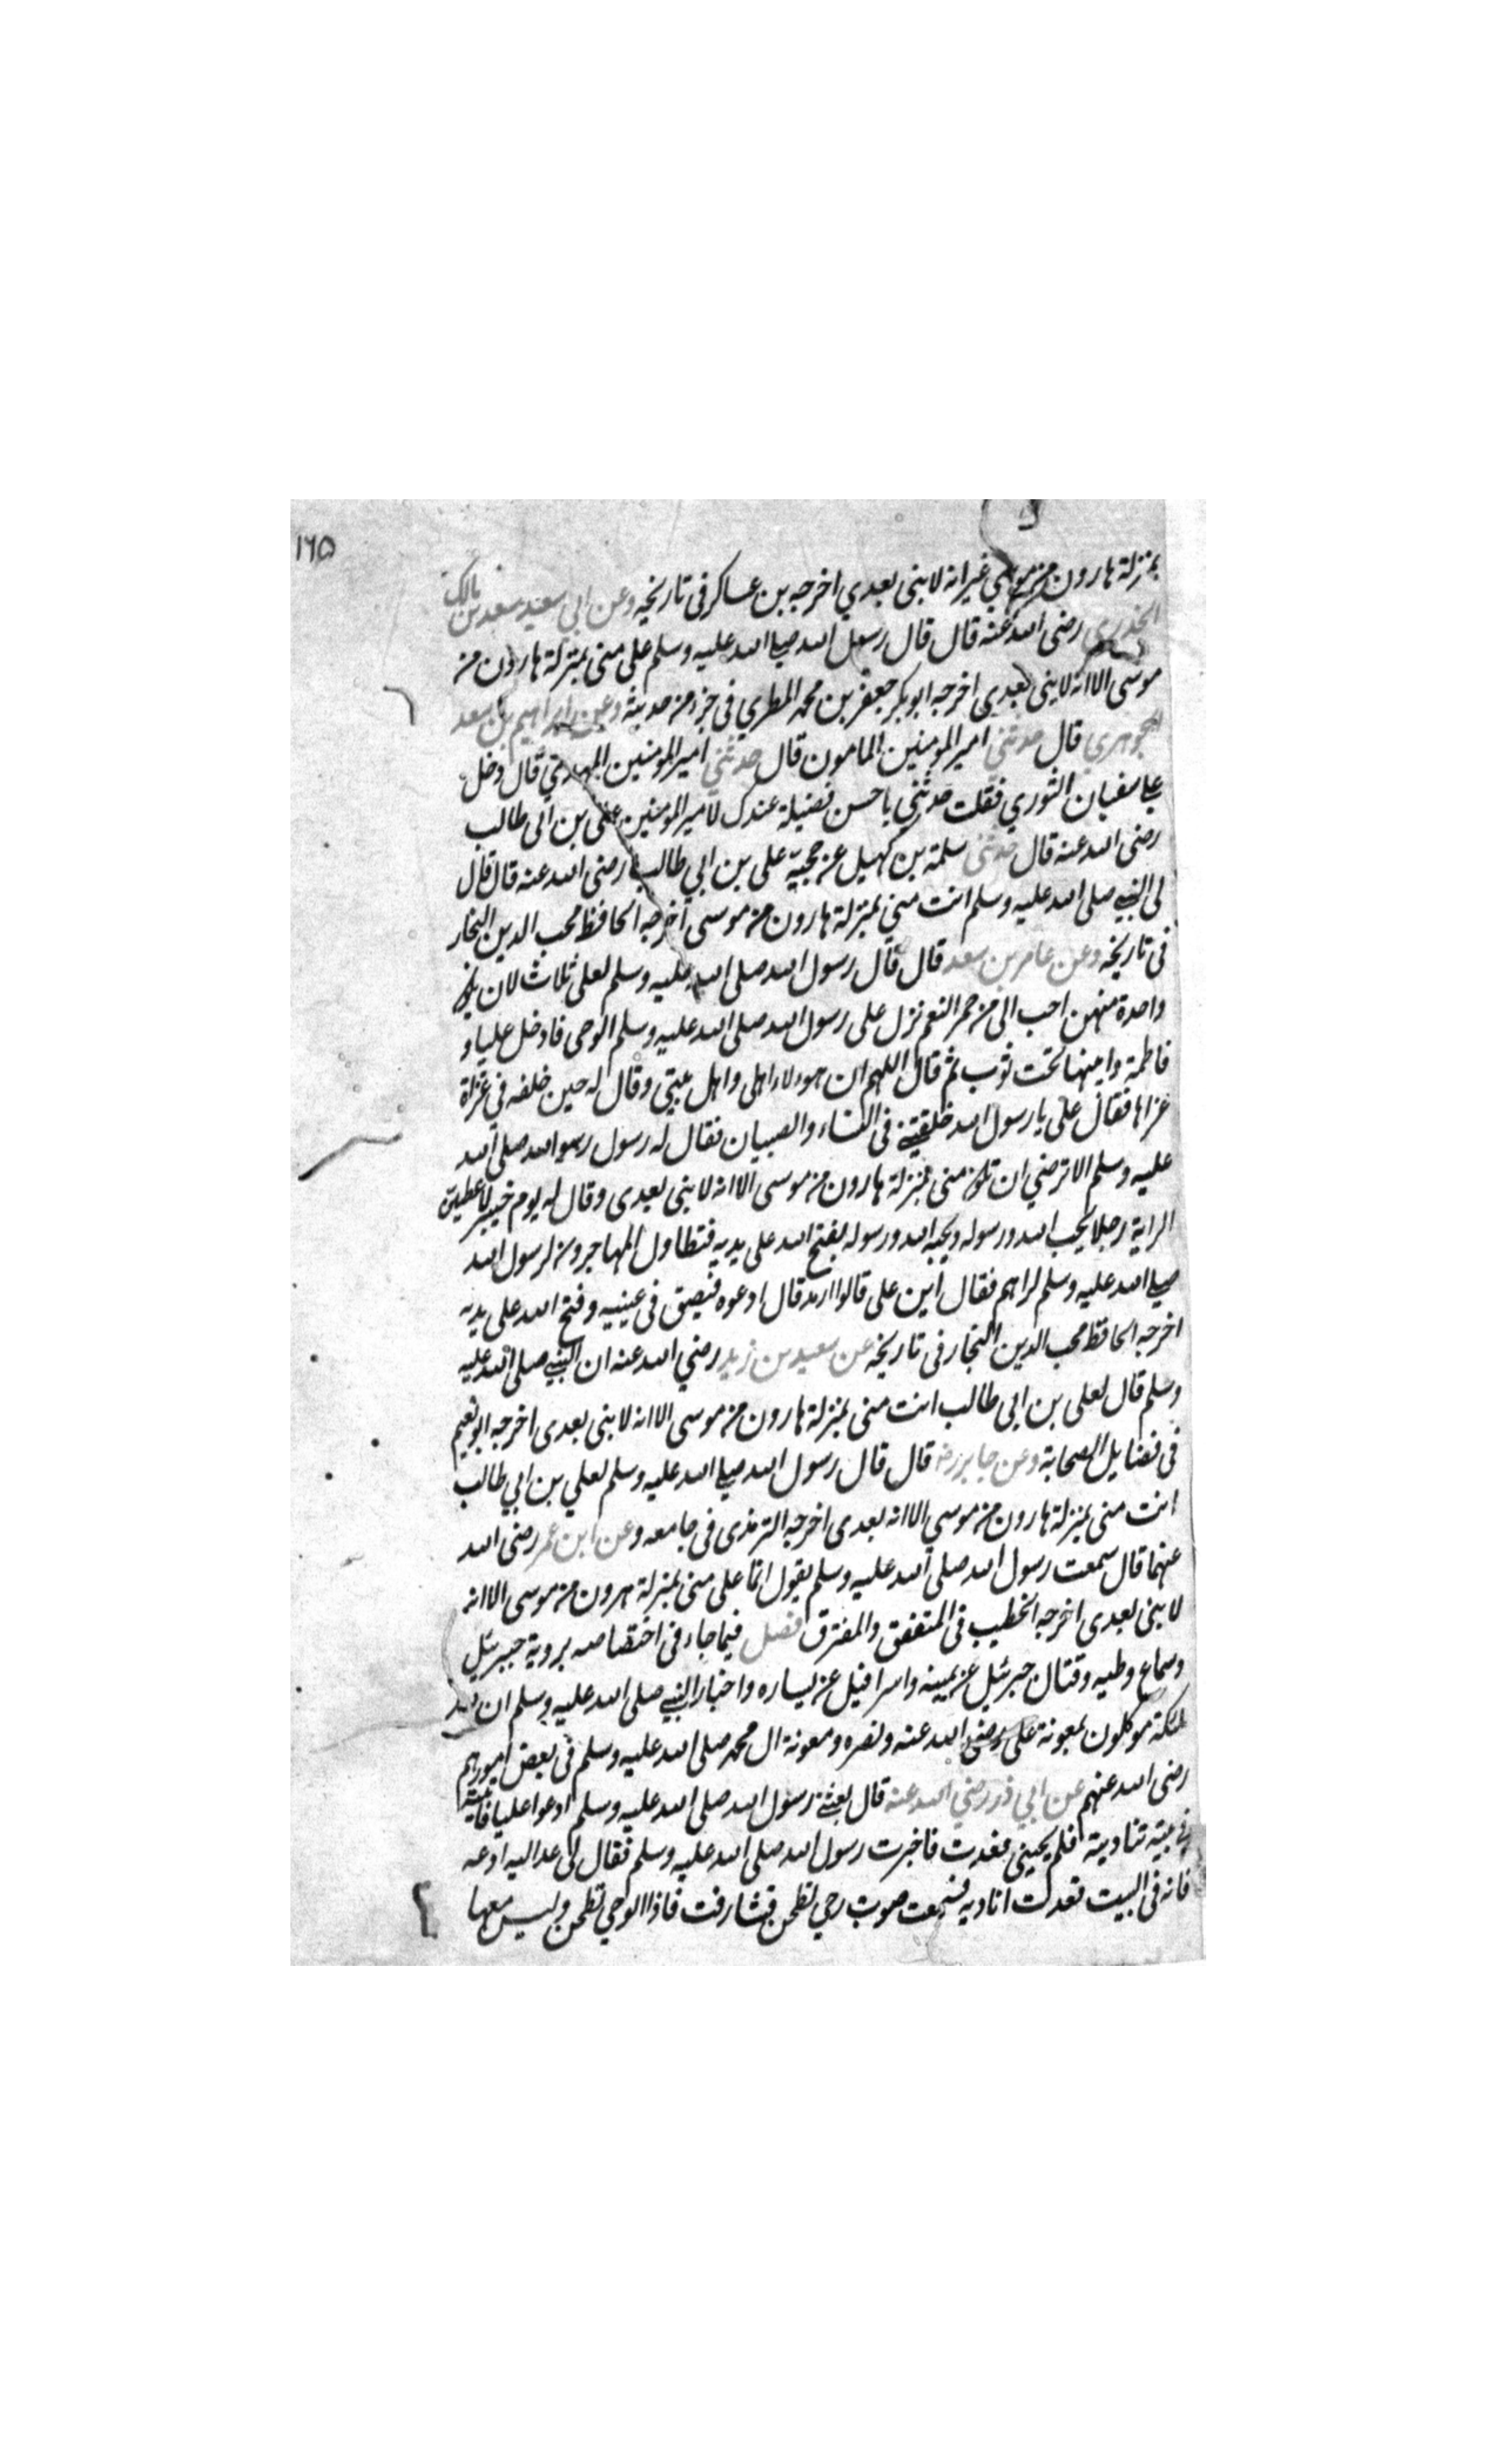 ١٦٥
بمنزلة هارون من موسي غير انه لا نبى بعدي اخرجه بن عساكر فى تاريخه وعن ابي سعيد سعد بن مالك
الخدري رضى الله عنه قال قال رسول الله صلى الله عليه وسلم على منى بمنزلة هارون من
موسى الا انه لا نبى بعدى اخرجه ابو بكر جعفر بن محمد المطري فى جزء من حديثه وعن ابراهيم بن سعد
الجوهري قال حدثنى امير المومنين المامون قال حدثني امير المومنين المهدي قال دخل
على سفيان الثوري فقلت حدثني باحسن فضيلة عندك لامير المومنين على بن ابى طالب
رضى الله عنه قال حدثنى سلمة بن كهيل عن حجيّه على بن ابي طالب رضى الله عنه قال قال
لى النبي صلى الله عليه وسلم انت مني بمنزلة هارون من موسى اخرجه الحافظ محب الدين النجار
فى تاريخه وعن عامر بن سعد قال قال رسول الله صلى الله عليه وسلم لعلى ثلاث لان يكون
واحدة منهن احب الى من حمر النعم نزل على رسول الله صلى الله عليه وسلم الوحى فادخل عليا و
فاطمة وابنيها تحت ثوب ثم قال اللهم ان هولاء اهلى واهل بيتى وقال له حين خلفه في غزاة
غزاها فقال على يا رسول الله خلفتني فى النساء والصبيان فقال له رسول رسول الله صلى الله
عليه وسلم الا ترضي ان تكون منى بمنزلة هارون من موسى الا انه لا نبى بعدى وقال له يوم خيبر لاعطين
الراية رجلا يحب الله ورسوله ويحبه الله ورسوله يفتح الله على يديه فتطاول المهاجرون لرسول الله
صلى الله عليه وسلم لراهم فقال اين على قالوا ارمد قال ادعوه فبصق فى عينيه وفتح الله على يديه
اخرجه الحافظ محب الدين النجار فى تاريخه عن سعيد بن زيد رضي الله عنه ان النبي صلى الله عليه
وسلم قال لعلى بن ابى طالب انت منى بمنزلة هارون من موسى الا انه لا نبى بعدى اخرجه ابو نعيم
فى فضايل الصحابة وعن جابر رضه قال قال رسول الله صلى الله عليه وسلم لعلي بن ابي طالب
انت منى بمنزلة هارون من موسي الا انه بعدى اخرجه الترمذى فى جامعه وعن ابن عمر رضى الله
عنهما قال سمعت رسول الله صلى الله عليه وسلم يقول انما على منى بمنزلة هرون من موسى الا انه
لا نبى بعدى اخرجه الخطيب فى المتفق والمفترق فصل فيما جاء فى اختصاصه بروية جبرئيل
وسماع وطيه وقتال جبرئيل عن يمينه واسرافيل عن يساره واخبار النبي صلى الله عليه وسلم ان لله
ملئكة موكلون بمعونة على رضى الله عنه ونصره ومعونة ال محمد صلى الله عليه وسلم فى بعض امورهم
رضى الله عنهم عن ابي ذر رضي الله عنه قال بعثني رسول الله صلى الله عليه وسلم ادعوا عليا فاتيته
فى بيته تناديته فلم يجيبنى فعدت فاخبرت رسول الله صلى الله عليه وسلم فقال لى عد اليه ادعه
فانه فى البيت فعدت اناديه فسمعت صوت رحي تطحن فتشارفت فاذا الوحي تطحن وليس معها